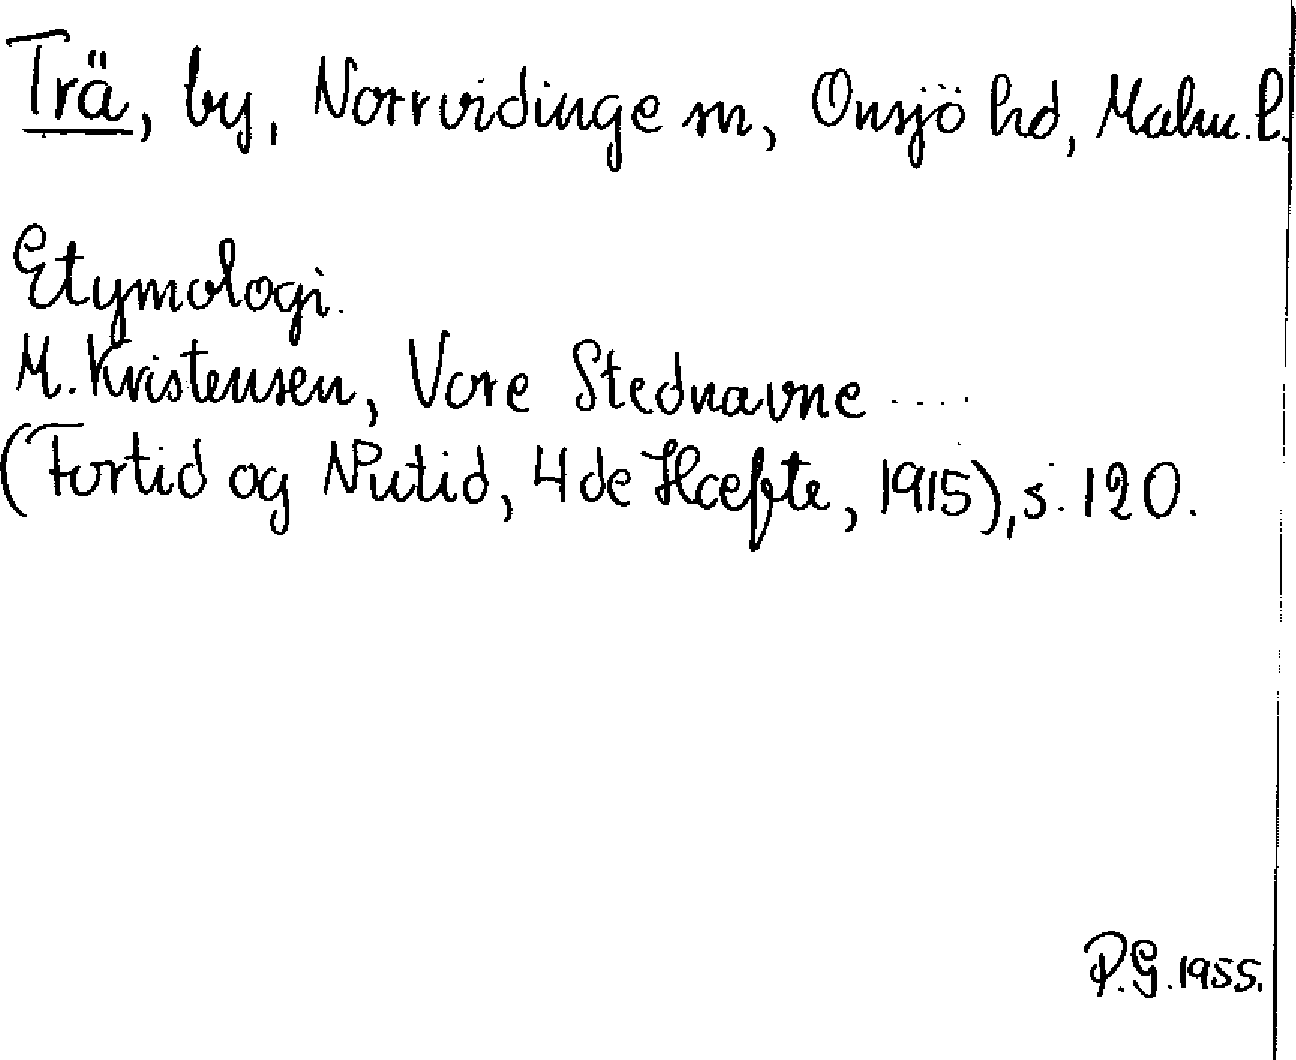 Trä, by, Norrvidinge sn, Onsjö hd, Malm. l.
Etymologi.
M. Kristensen, Vore Stednavne ....
(Fortid og Nutid, 4de Hæfte, 1915), s. 120.
P.G. 1955.